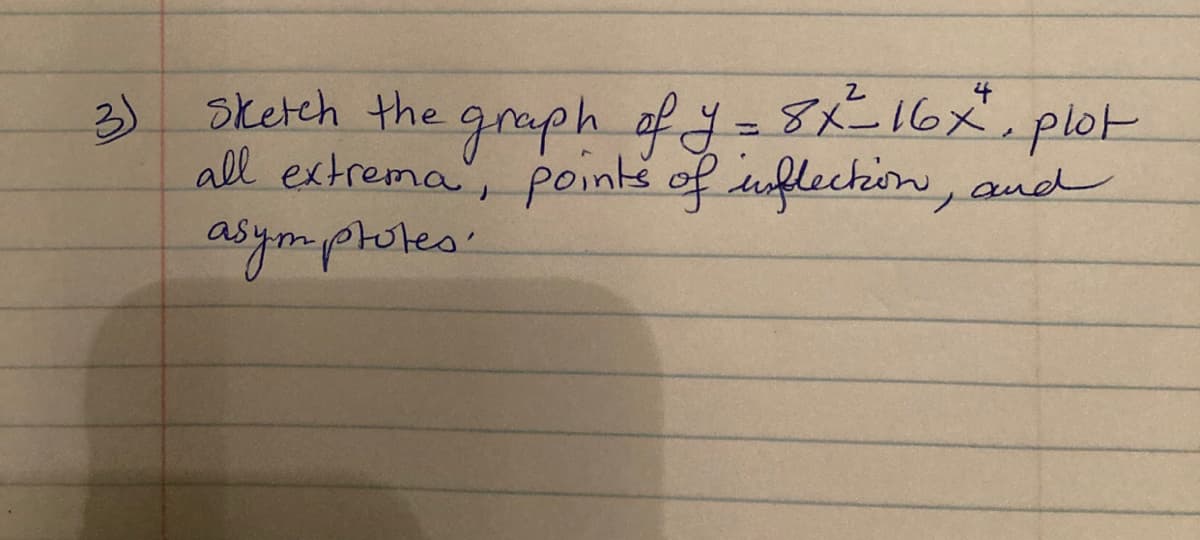 3) Sketch the graph of y = 8x² - 16x⁴. plot
all extrema, points of inflection, and
asymptotes.